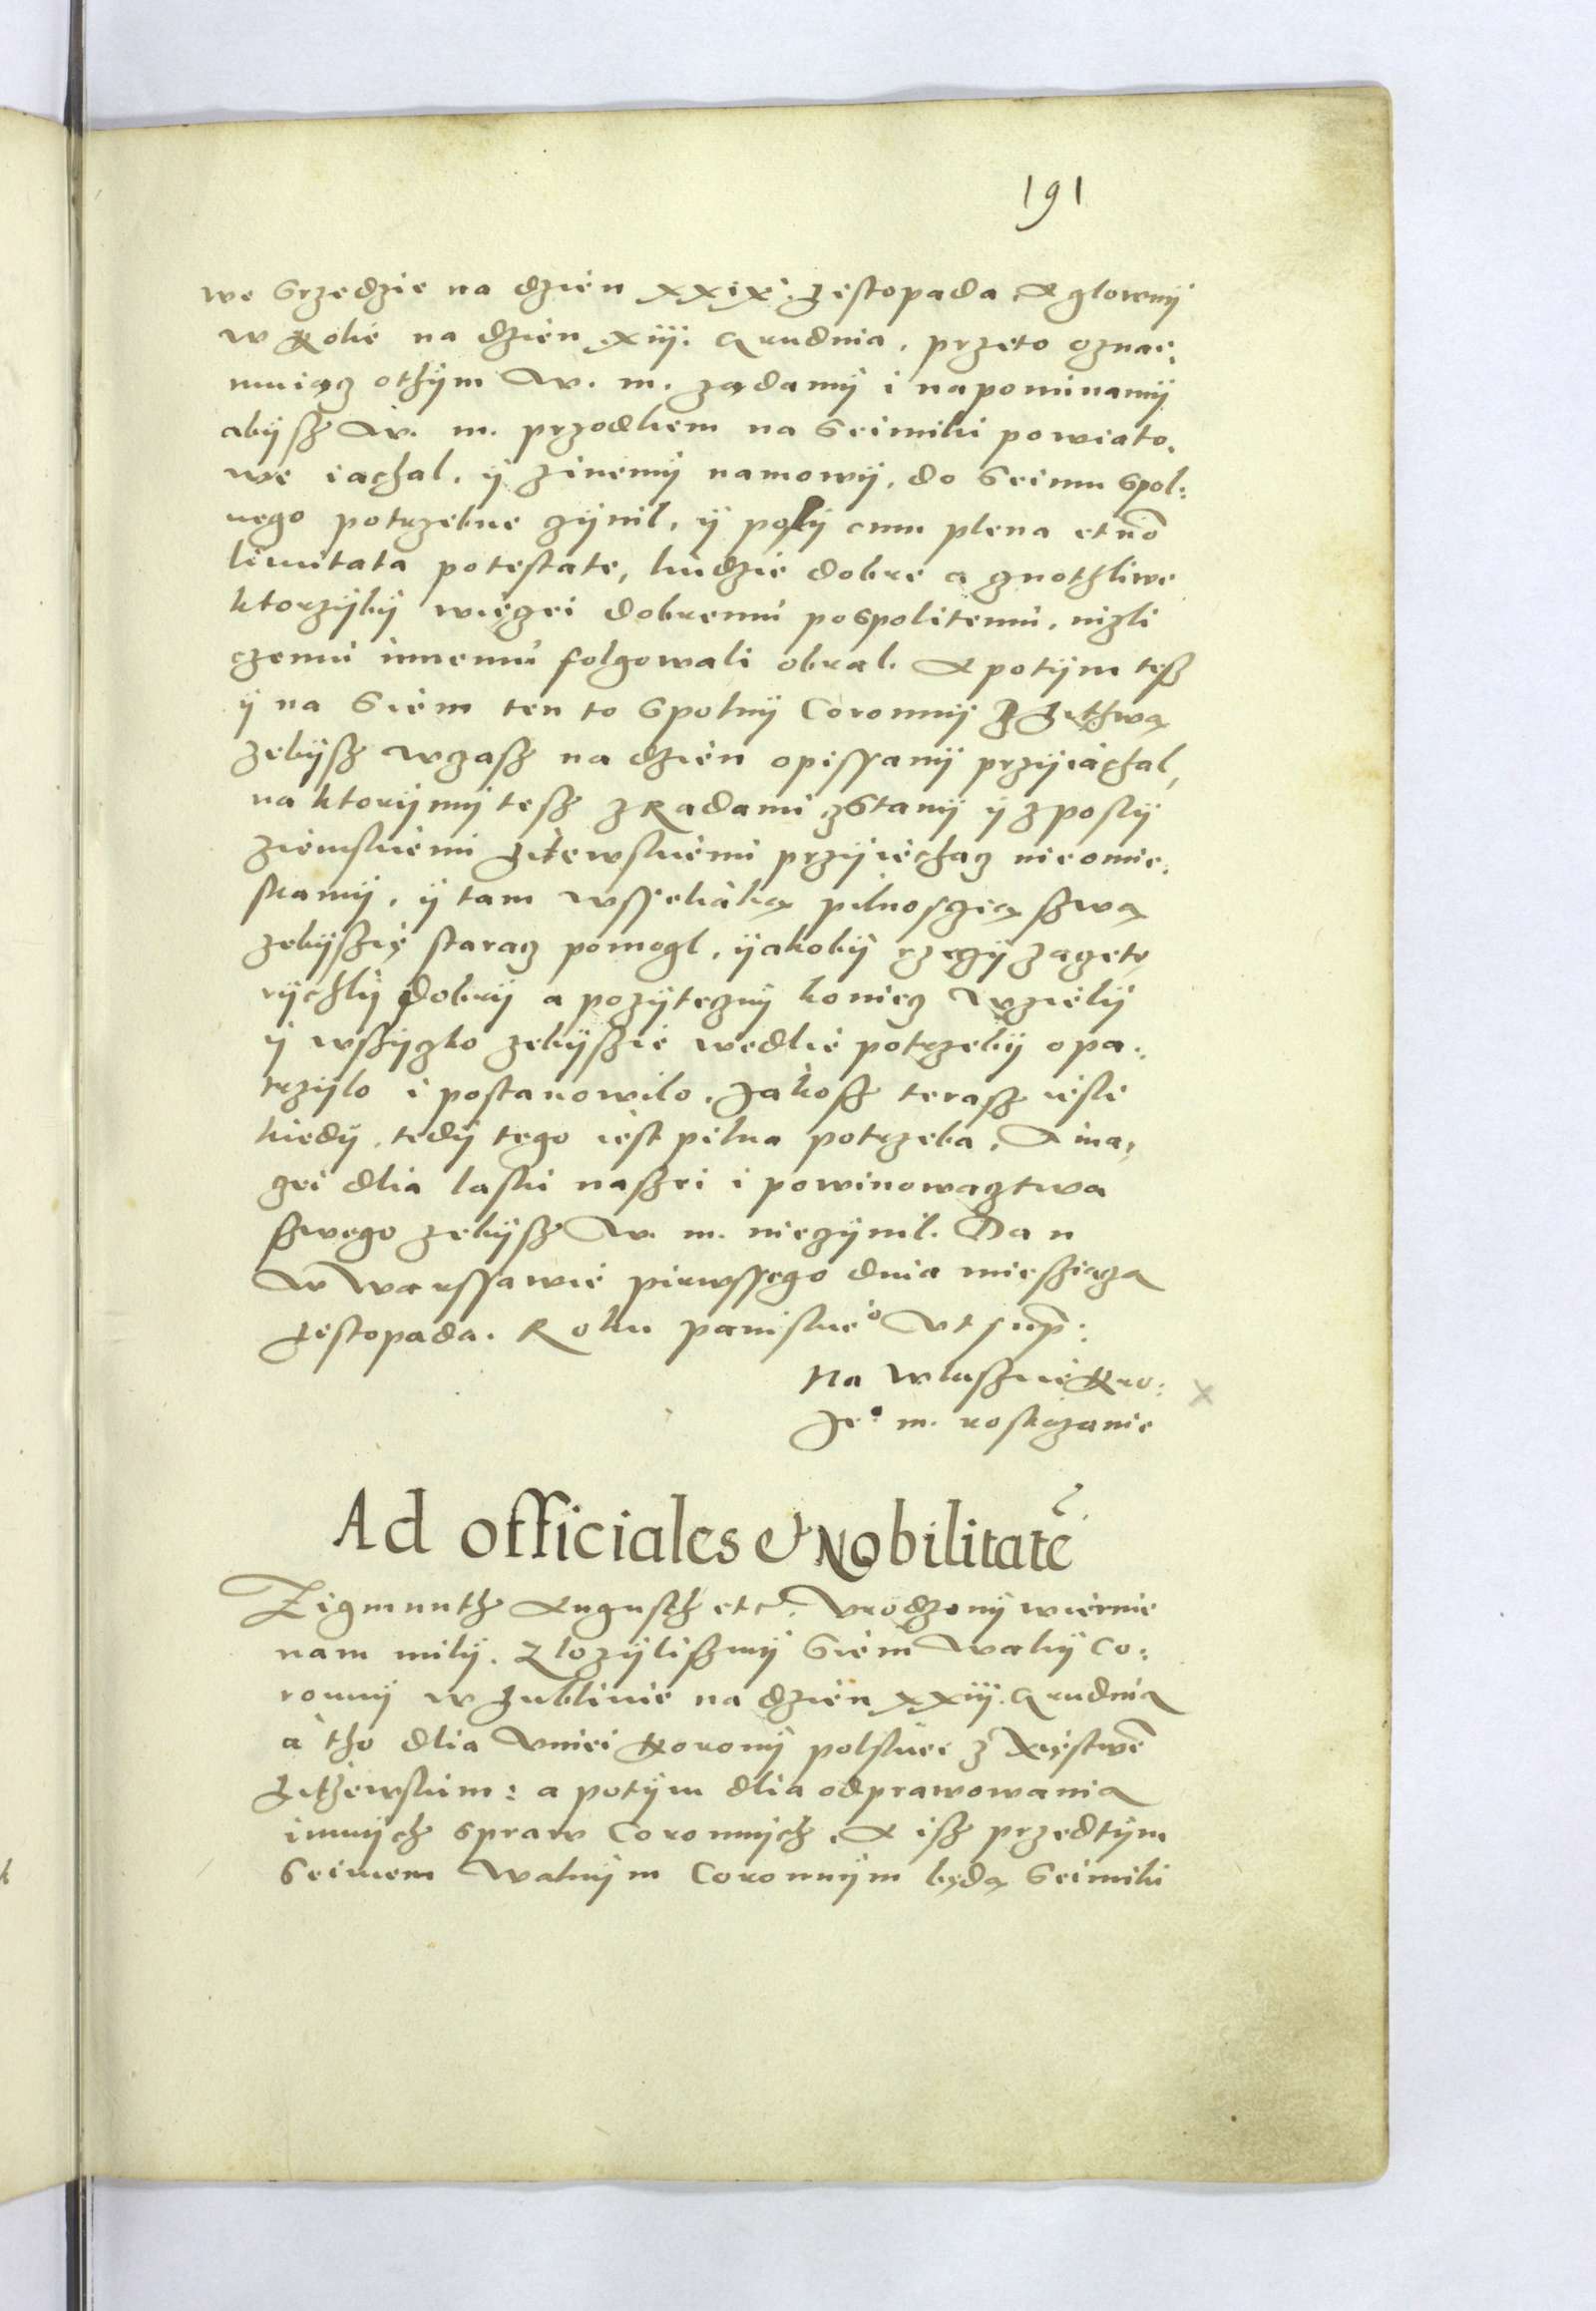 191
we Srzedzie na dzien xxix Listopada A glowny
w Kole na dzien xiij. Grudnia, przeto oznai,
muiącz othym W. m. żądamy i napominamy
abyssz W. m. przodkiem na Seimiki powiato,
we iachal, y z inemy namowy, do Seimu spol:
nego potrzebne zynil, y posly cum plena et no
limitata potestate, ludzie dobre a cznothliwe
ktorzyby więczei dobremu pospolitemu, nizli
czemu innemu folgowali obral. A potym tesz
y na Siem ten to spolny Coronny z Lithwą
zebysz wczasz na dzien opissany przyiachal,
na ktorymy tesz z Radami z Stany y z posly
ziemskiemi Litewskiemi przyiechacz nieomie,
skamy, y tam wsseliaką pilnosczią szwą
zebyszię staracz pomogl, yakoby rzeczy zaczęte
rychly dobry a pozyteczny koniecz wzięly
y wszyczko zebyszie wedlie potrzeby opa,
trzylo i postanowilo. Jakosz terasz iesli
kiedy, tedy tego iest pilna potrzeba, A ina,
czei dlia laski naszei i powinowacztwa
szwego zebysz W. m. nieczynil. Dan
w Warssawie pirwssego dnia miesziącza
Listopada. Roku panskieo Ut sup:
Na wlasznie Kro:
Jeo m. roskazanie
Ad officiales et Nobilitatē
Zigmunth Augusth etc. Urodzony wiernie
nam mily. Zlozylismy Siem walny Co:
ronny w Lublinie na dzien xxiij. Grudnia
a tho dlia Uniei Korony polskiei z Xięstwē
Lithewskim: a potym dlia odprawowania
innych spraw Coronnych. A isz przed tym
Seimem walnym Coronnym będą Seimiki